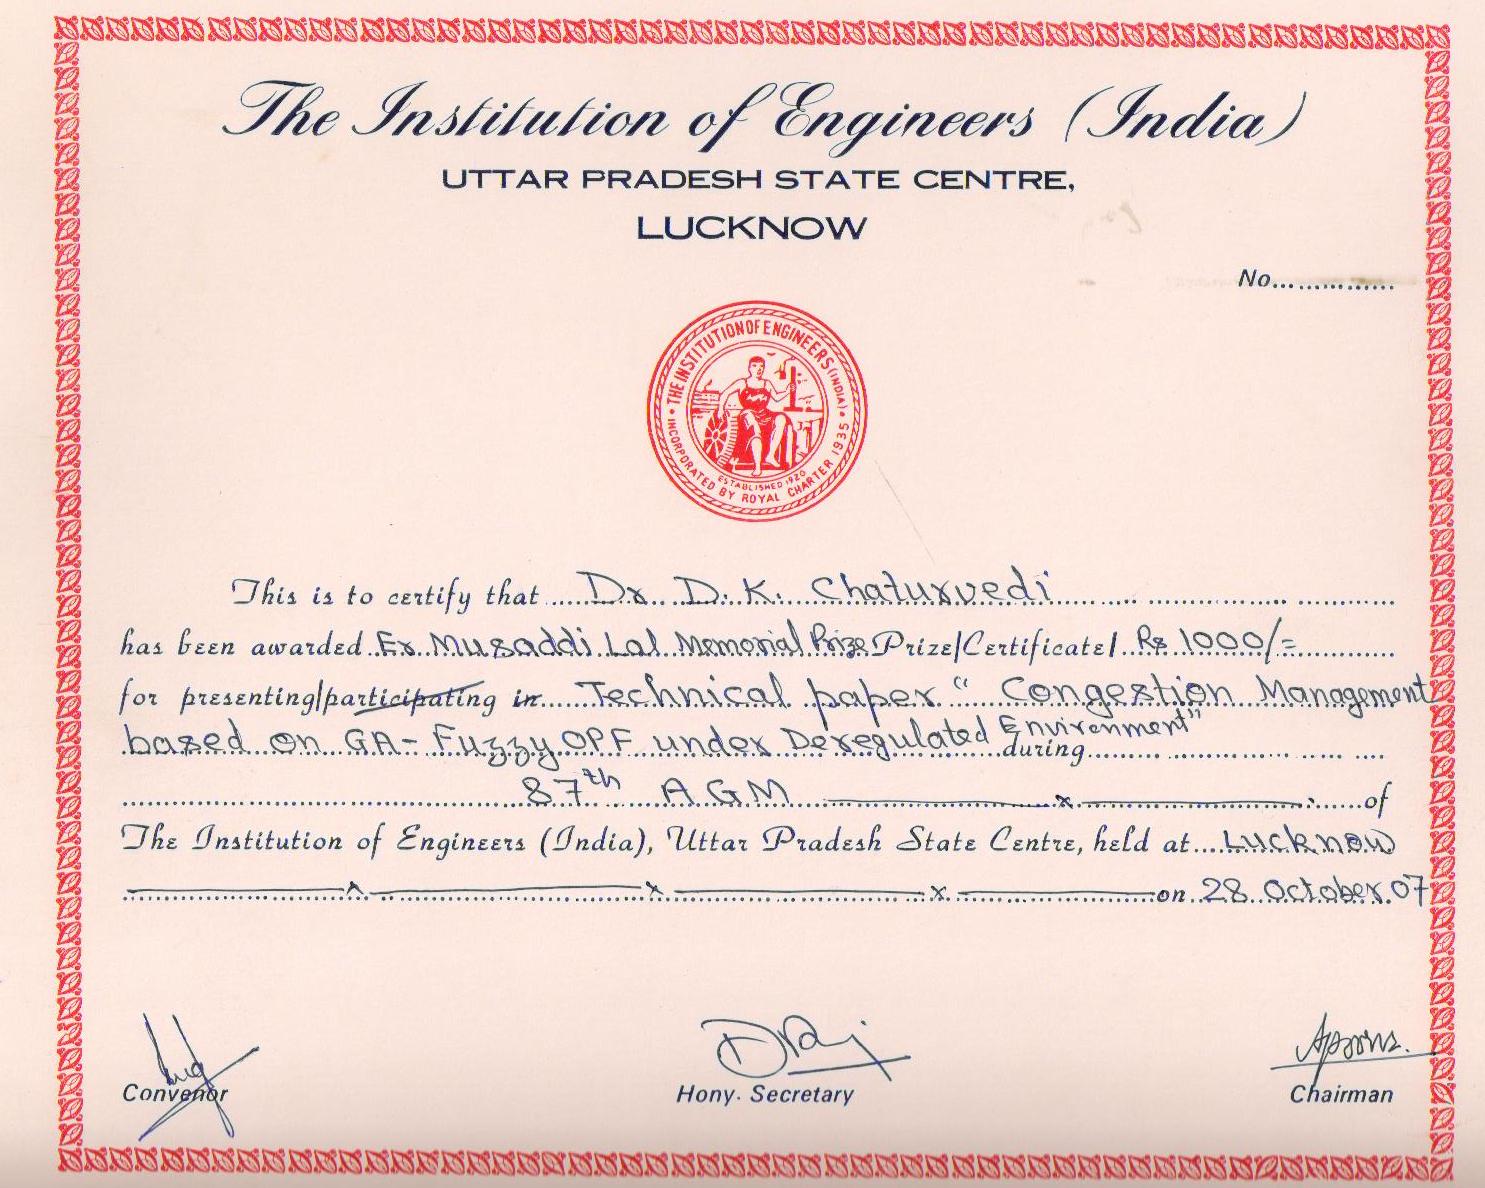 The Institution of Engineers (India)
UTTAR PRADESH STATE CENTRE,
LUCKNOW
No...............
THE INSTITUTION OF ENGINEERS (INDIA)
ESTABLISHED 1920
INCORPORATED BY ROYAL CHARTER 1935
This is to certify that Dr. D. K. Chaturvedi
has been awarded Er. Musaddi Lal Memorial Prize Prize/Certificate/ Rs 1000/=
for presenting/participating in Technical paper "Congestion Management
based on GA-Fuzzy OPF under Deregulated Environment" during
87th AGM x of
The Institution of Engineers (India), Uttar Pradesh State Centre, held at Lucknow
x x x on 28 October 07
Convenor Hony. Secretary Chairman